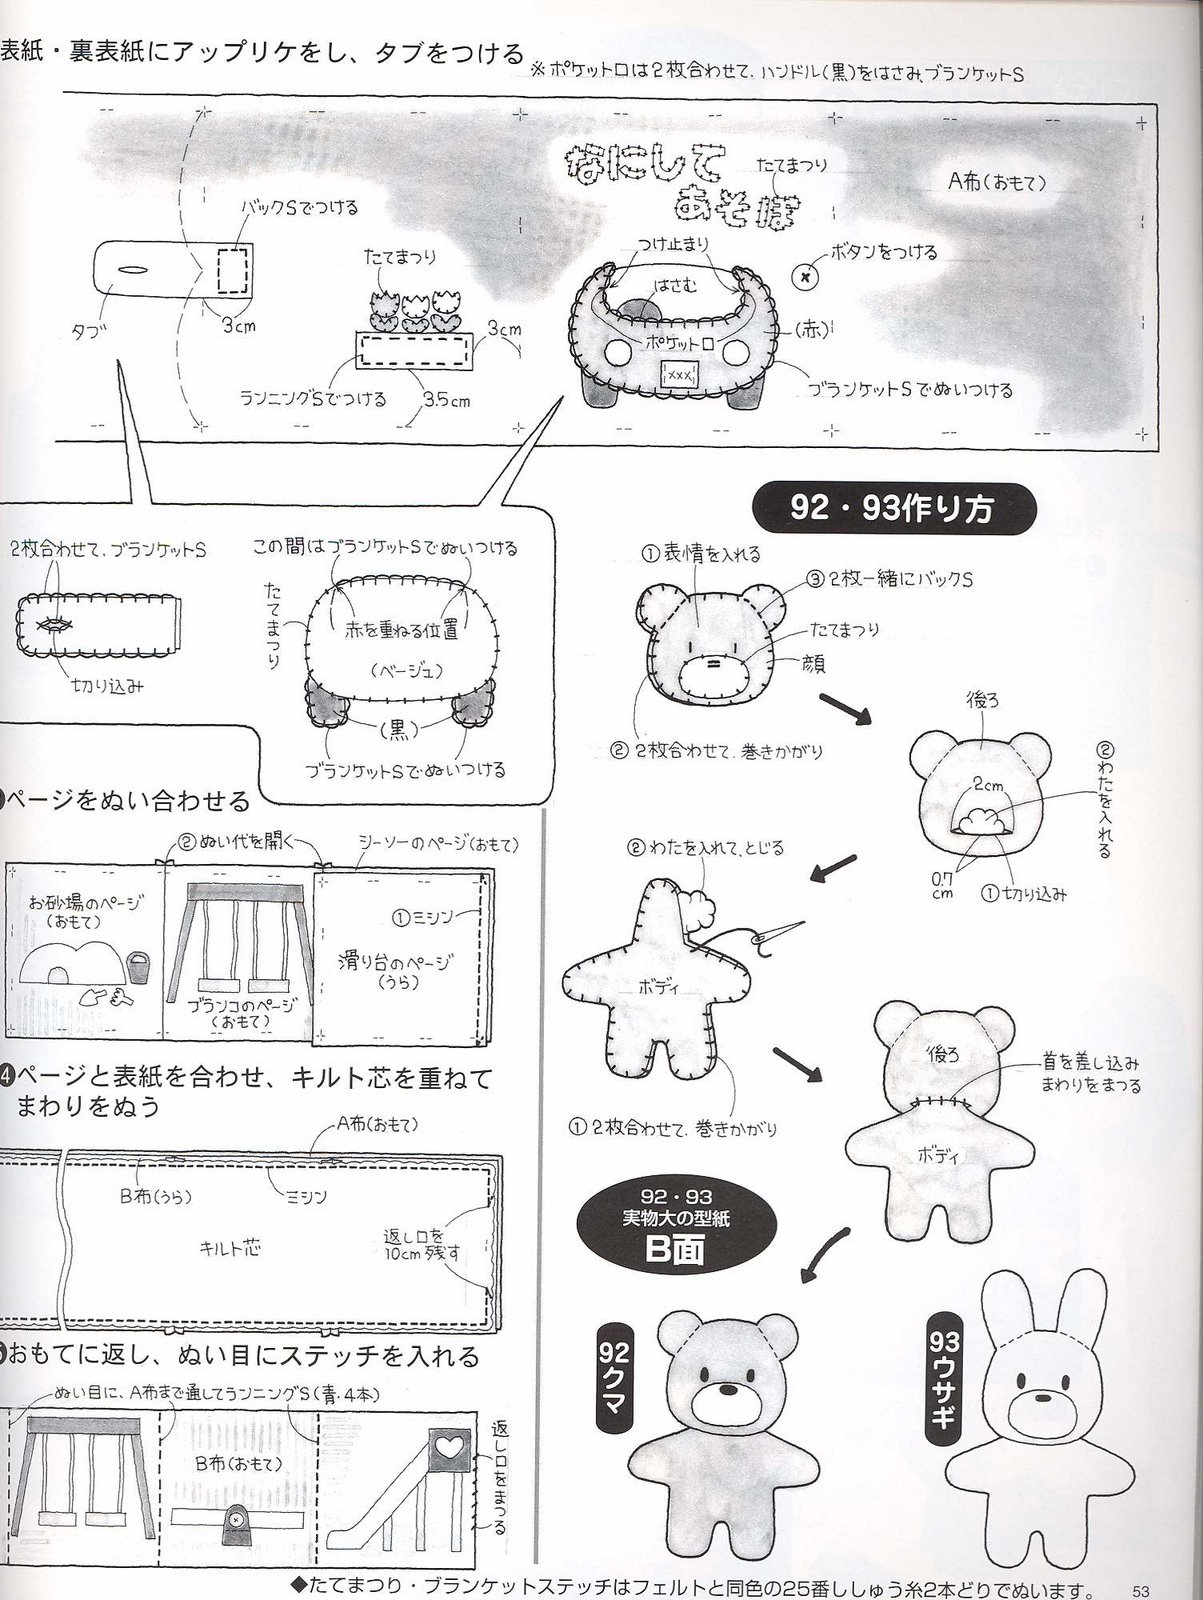 表紙・裏表紙にアップリケをし、タブをつける
※ポケット口は2枚合わせて、ハンドル(黒)をはさみ、ブランケットS
なにして
あそぼ
たてまつり
A布(おもて)
バックSでつける
タブ
3cm
たてまつり
3cm
ランニングSでつける
3.5cm
つけ止まり
はさむ
ポケット口
xxx
ボタンをつける
(赤)
ブランケットSでぬいつける
2枚合わせて、ブランケットS
切り込み
この間はブランケットSでぬいつける
たてまつり
赤を重ねる位置
(ベージュ)
(黒)
ブランケットSでぬいつける
ページをぬい合わせる
②ぬい代を開く
シーソーのページ(おもて)
お砂場のページ
(おもて)
①ミシン
滑り台のページ
(うら)
ブランコのページ
(おもて)
4ページと表紙を合わせ、キルト芯を重ねて
まわりをぬう
A布(おもて)
B布(うら)
ミシン
キルト芯
返し口を
10cm残す
おもてに返し、ぬい目にステッチを入れる
ぬい目に、A布まで通してランニングS(青・4本)
B布(おもて)
返し口をまつる
92・93作り方
①表情を入れる
③2枚一緒にバックS
たてまつり
顔
②2枚合わせて、巻きかがり
後ろ
2cm
②わたを入れる
0.7
cm
①切り込み
②わたを入れて、とじる
ボディ
①2枚合わせて、巻きかがり
後ろ
首を差し込み
まわりをまつる
ボディ
92・93
実物大の型紙
B面
92クマ
93ウサギ
◆たてまつり・ブランケットステッチはフェルトと同色の25番ししゅう糸2本どりでぬいます。
53